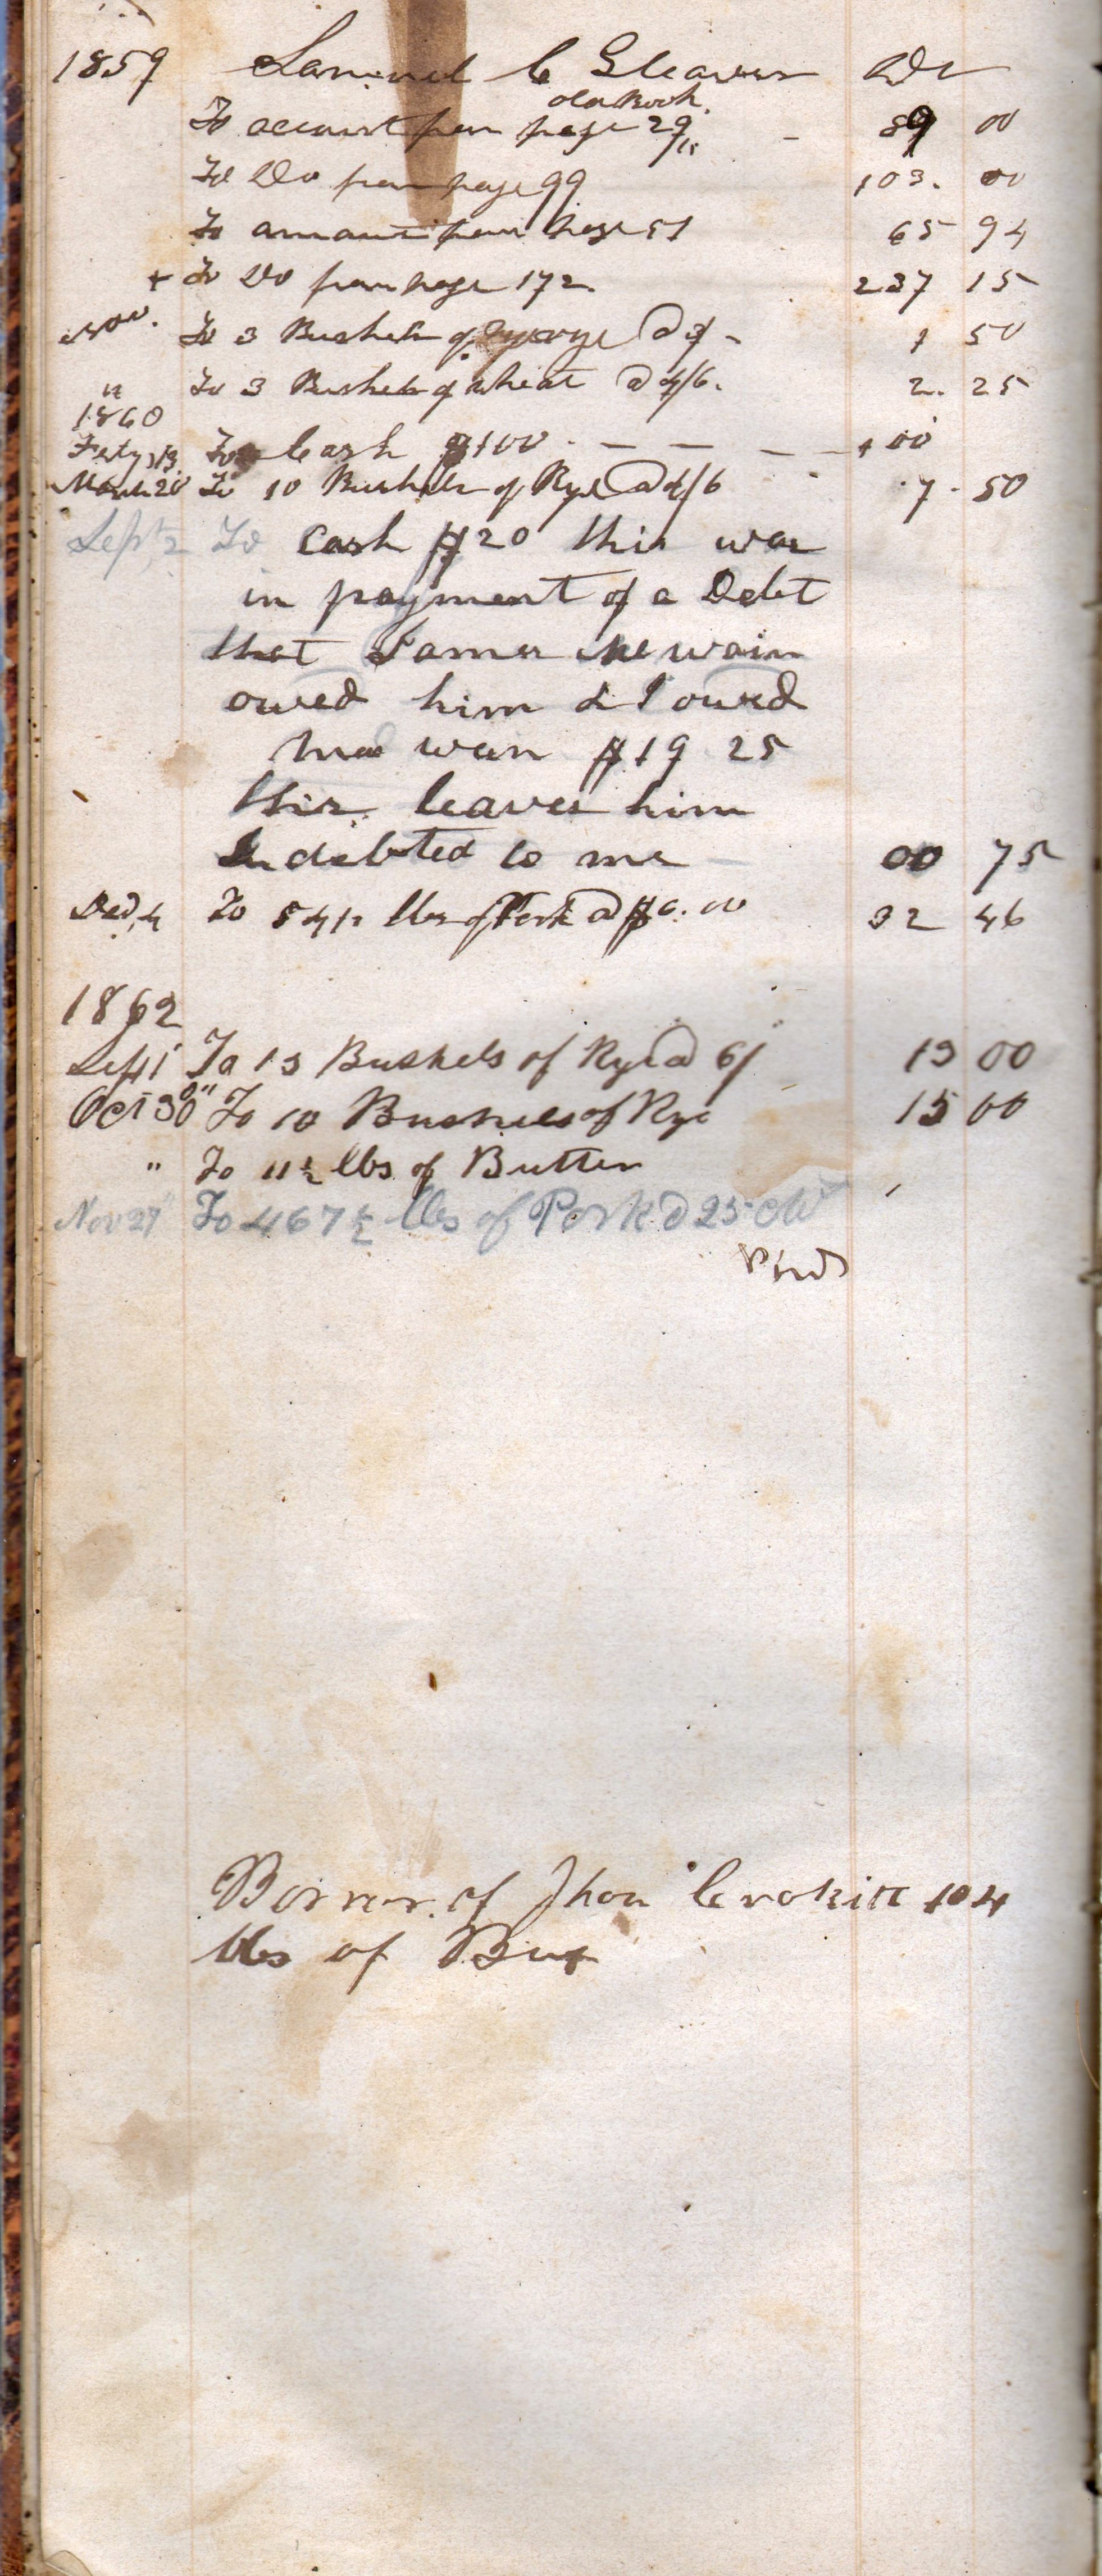 1859 Samuel C Gleaves Dr
old Book
To account from page 29 - 89 00
To Do from page 99 103. 00
To amount from page 51 65 94
+ To Do from page 172 237 15
Nov. To 3 Bushels of Rye @ 3/- 1 50
" To 3 Bushels of wheat @ 4/6. 2. 25
1860
Feby 13 To Cash $100 - - - - 100
March 20 To 10 Bushels of Rye @ 4/6 7. 50
Sept 2 To Cash $20 this was
in payment of a Debt
that James
owed him & I owed
$19 25
this leaves him
Indebted to me 00 75
Dec 4 To 541 lbs of Pork @ $6.00 32 46
1862
Sept 1 To 13 Bushels of Rye @ 6/ 13 00
Oct 30" To 10 Bushels of Rye 15 00
" To 11½ lbs of Butter
Nov 27" To 467½ lbs of Pork @ 25
Borrer. of Jhon 104
lbs of